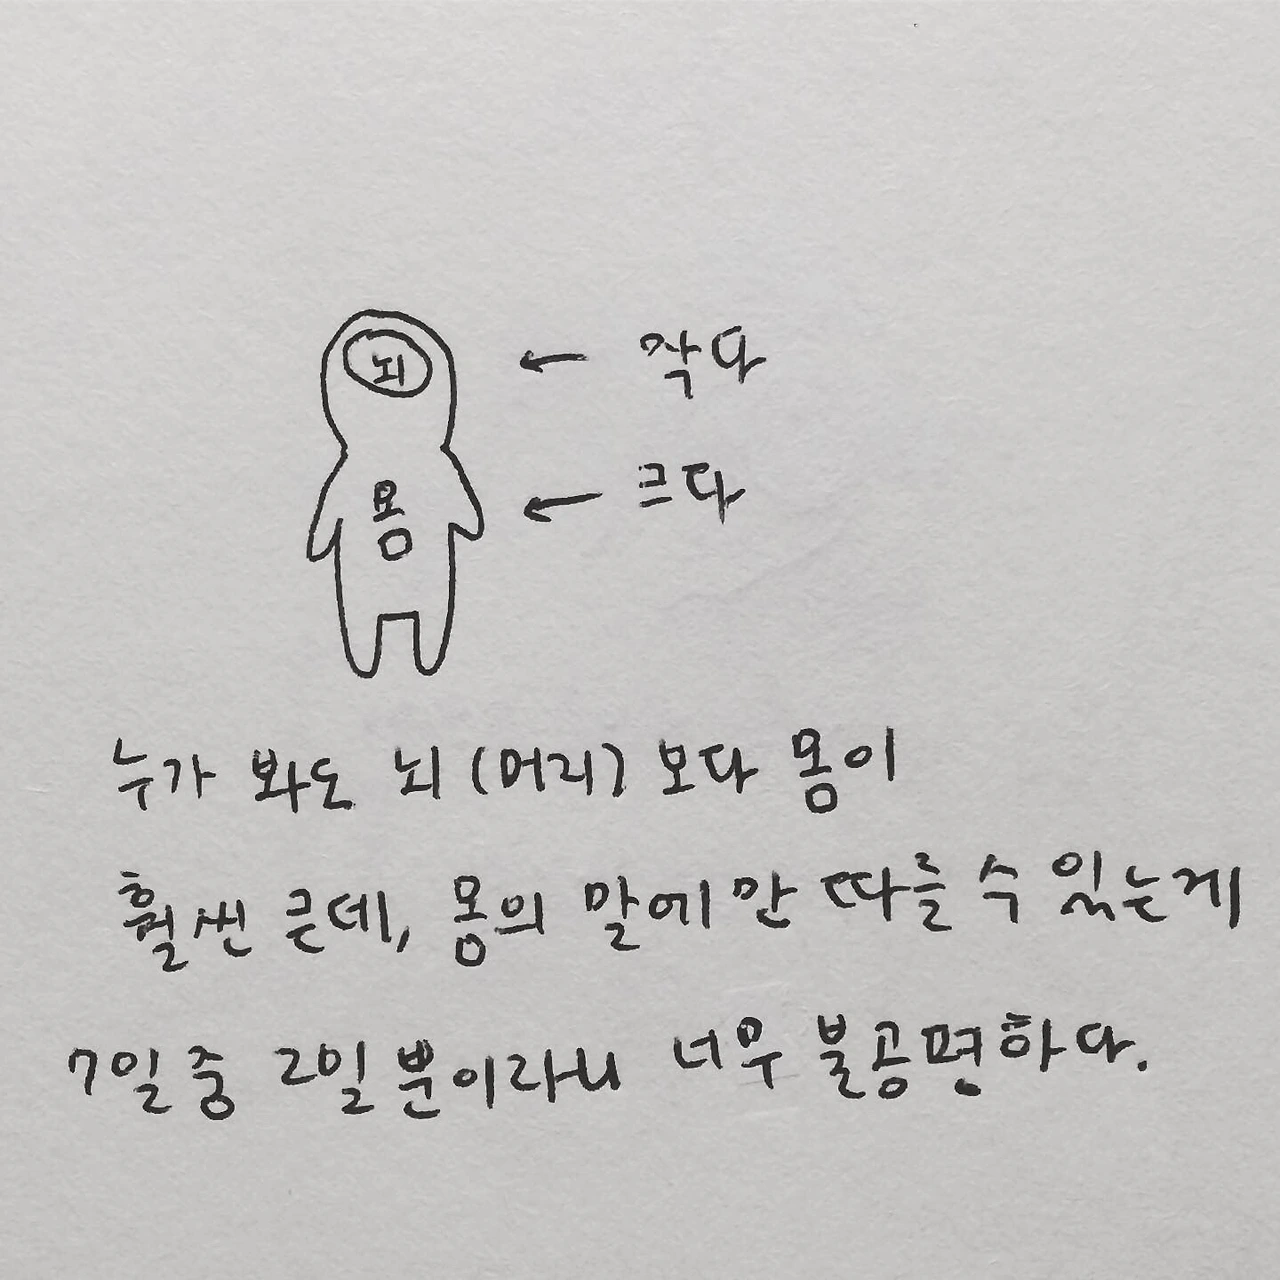 뇌
작다
몸
크다
누가 봐도 뇌 (머리) 보다 몸이
훨씬 큰데, 몸의 말에만 따를 수 있는게
7일 중 2일 뿐이라니 너무 불공평하다.